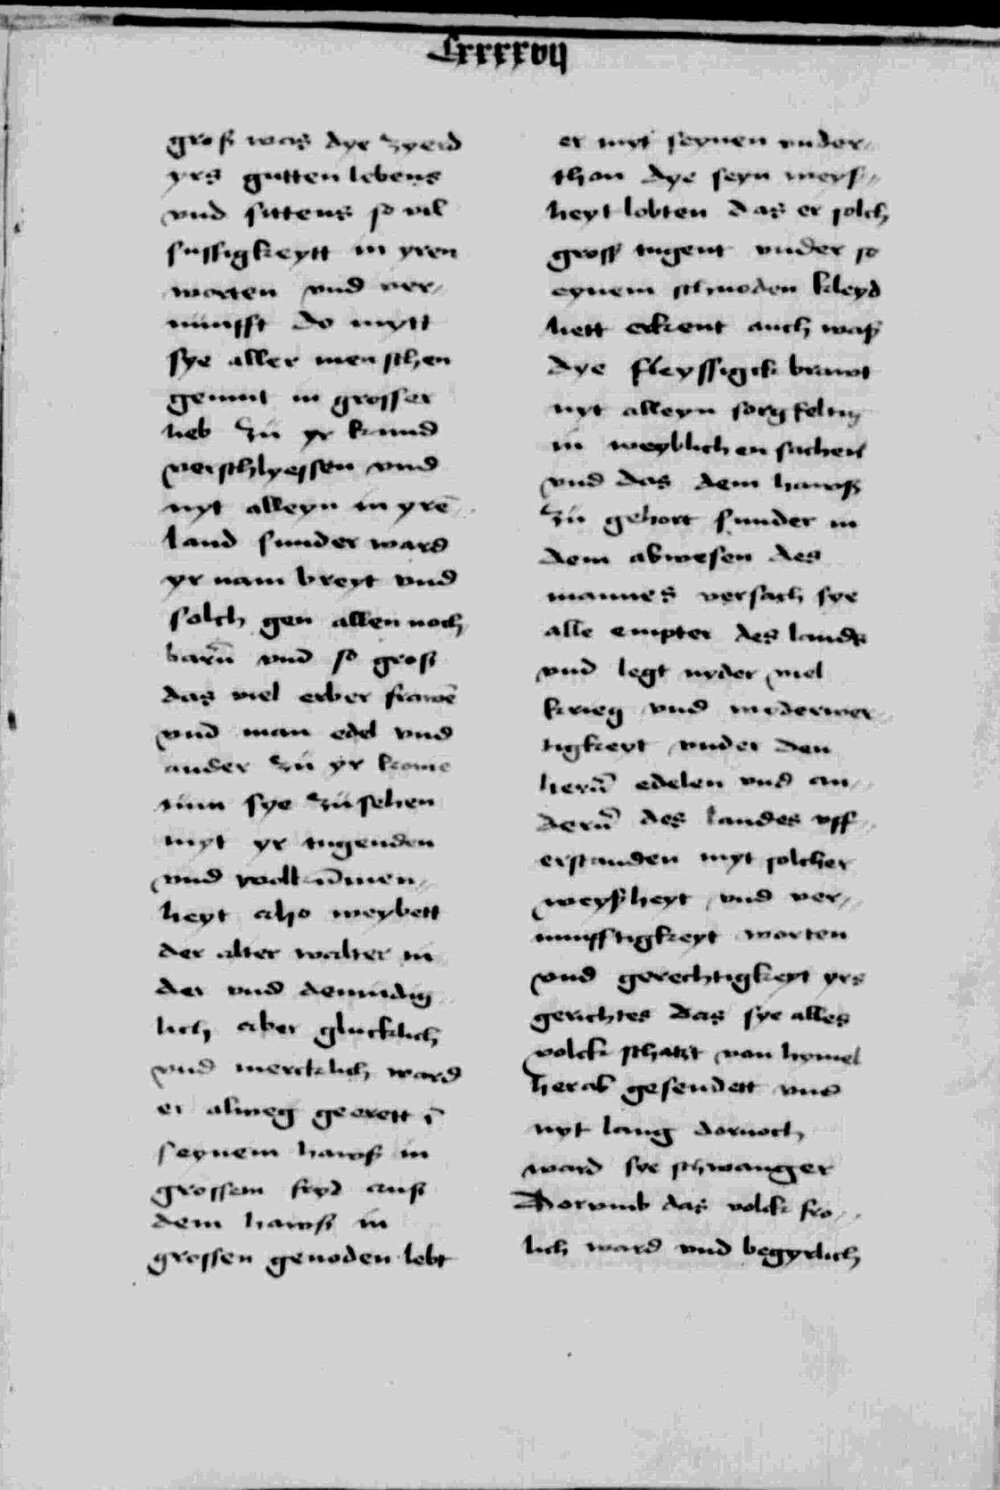 Lxxxxvij
groß was dye zyerd
yrs gutten lebens
vnd sittens so vil
sussigkeytt in yren
worten vnd ver⸗
nunfft do mytt
sye aller menschen
gemut in grosser
lieb zu yr kund
verschlyessen vnd
nyt alleyn in yrē
land sunder ward
yr nam breyt vnd
solch gen allen noch
barn̄ vnd so groß
das viel erber frawē
vnd man edel vnd
ander zu yr kome
nun sye zu sehen
myt yr tugenden
vnd volkūmen⸗
heyt also weybett
der alter walter in
der vnd demudig
lich aber glucklich
vnd mercklich ward
er alweg geerett ī
seynem hawß in
grossem fryd auß
dem hawß in
grossen genoden lebt
er myt seynen vnder⸗
than dye seyn weyß⸗
heyt lobten das er solch
gross tugent vnder so
eynem schnoden kleyd
hett erkent auch waß
dye fleyssigck brawt
nyt alleyn sorgfeltig
in weyblichen sachen
vnd das dem hawß
zu gehort sunder in
dem abwesen des
mannes versach sye
alle empter des lands
vnd legt nyder viel
krieg vnd wyderwer⸗
tigkeyt vnder den
hern̄ edelen vnd an⸗
dern̄ des landes vff⸗
erstanden myt solcher
weyßheyt vnd ver⸗
nunfftigkeyt worten
vnd gerechtigkeyt yrs
gerichtes das sye alles
volck schatzt van hymel
herab gesendett vnd
nyt lang dornoch
ward sye schwanger
Dorvmb das volck fro⸗
lich ward vnd begyrlich